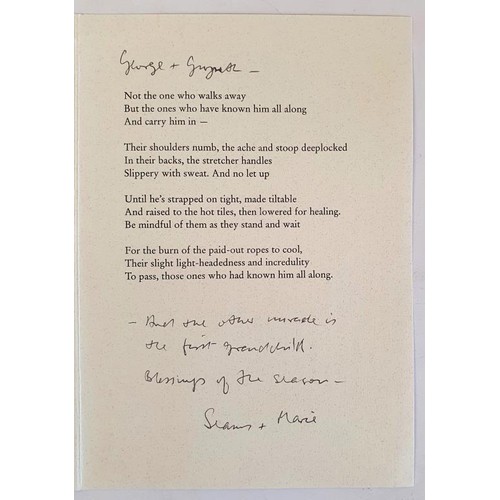 George + Gwyneth —
Not the one who walks away
But the ones who have known him all along
And carry him in —
Their shoulders numb, the ache and stoop deeplocked
In their backs, the stretcher handles
Slippery with sweat. And no let up
Until he's strapped on tight, made tiltable
And raised to the hot tiles, then lowered for healing.
Be mindful of them as they stand and wait
For the burn of the paid-out ropes to cool,
Their slight light-headedness and incredulity
To pass, those ones who had known him all along.
— And the other miracle is
the first grandchild.
Blessings of the season —
Seamus + Marie